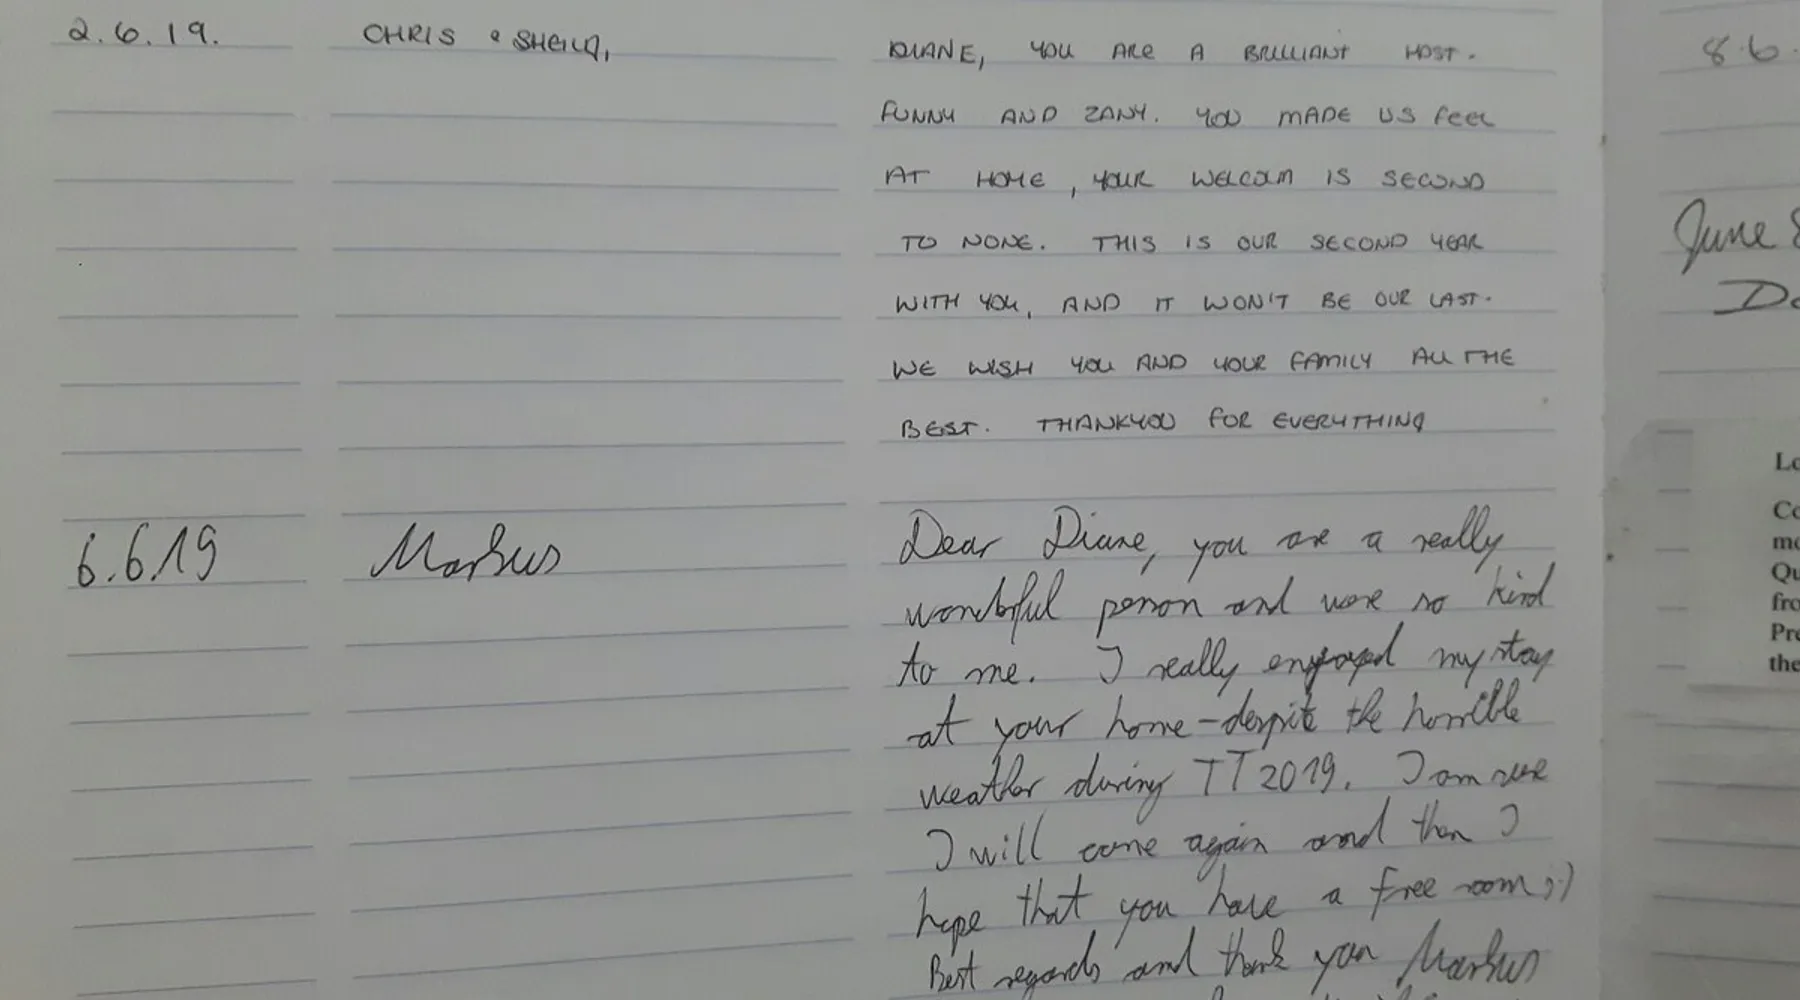 2.6.19.
CHRIS & SHEILA,
DIANE, YOU ARE A BRILLIANT HOST.
FUNNY AND ZANY. YOU MADE US FEEL
AT HOME, YOUR WELCOM IS SECOND
TO NONE. THIS IS OUR SECOND YEAR
WITH YOU, AND IT WON'T BE OUR LAST.
WE WISH YOU AND YOUR FAMILY ALL THE
BEST. THANKYOU FOR EVERYTHING
6.6.19
Markus
Dear Diane, you are a really
wonderful person and were so kind
to me. I really enjoyed my stay
at your home - despite the horrible
weather during TT 2019. I am sure
I will come again and then I
hope that you have a free room ;-)
Best regards and thank you Markus
8.6.
June 8
Lo
Co
mo
Qu
fro
Pre
the